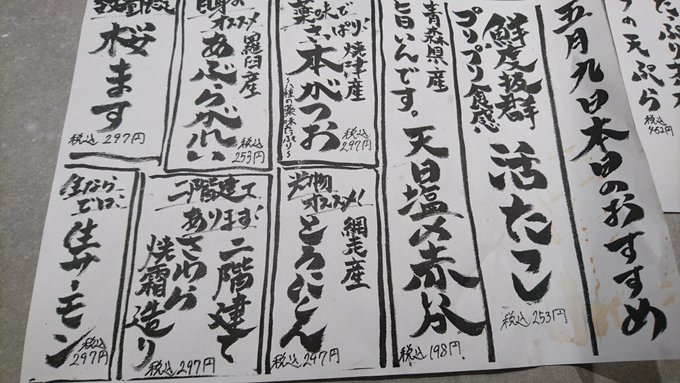 の天ぷら
税込462円
五月九日本日のおすすめ
鮮度抜群
プリプリ食感
活たこ
税込253円
青森県産
旨いんです。
天日塩〆赤谷
税込198円
焼津産
本がつお
税込297円
光物
オススメ!
網走産
とろにしん
税込297円
オススメ
羅臼産
あぶらがれい
税込253円
二階建て
あります
二階建て
さわら
焼霜造り
税込297円
桜ます
税込297円
生なら
では、
生サーモン
税込297円